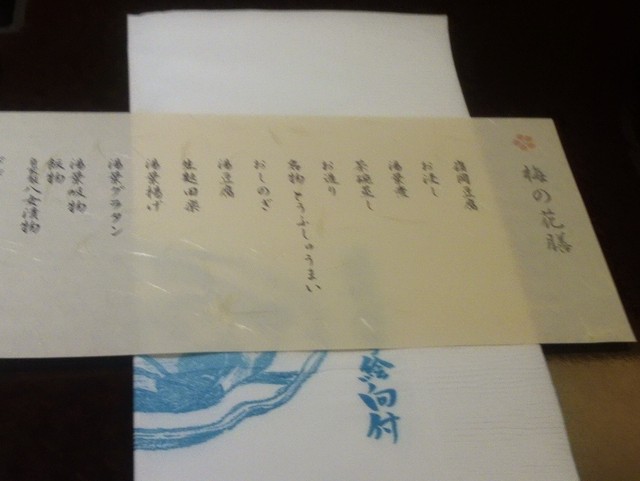 梅の花膳
嶺岡豆腐
お浸し
湯葉煮
茶碗蒸し
お造り
名物 とうふしゅうまい
おしのぎ
湯豆腐
生麩田楽
湯葉揚げ
湯葉グラタン
湯葉吸物
飯物
八女漬物
絵向付